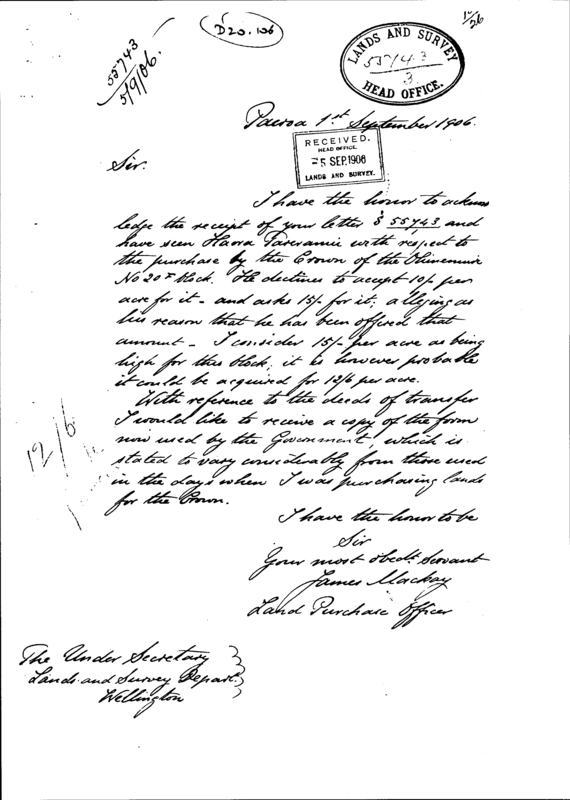 D20.106
10/26
55743
5/9/06.
LANDS AND SURVEY
55743
3.
HEAD OFFICE.
Paeroa 1st September 1906.
RECEIVED.
HEAD OFFICE.
-5 SEP.1906
LANDS AND SURVEY.
Sir.
I have the honor to acknow
ledge the receipt of your letter 55743 and
have seen Haora Tareranui with respect to
the purchase by the Crown of the Ohinemuri
No 20F block. He declines to accept 10/- per
acre for it - and asks 15/- for it; alleging as
his reason that he has been offered that
amount - I consider 15/- per acre as being
high for this block; it is however probable
it could be acquired for 12/6 per acre.
With reference to the deeds of transfer
I would like to receive a copy of the form
now used by the Government, which is
stated to vary considerably from those used
in the days when I was purchasing lands
for the Crown.
12/6
I have the honor to be
Sir
Your most obedt. Servant
James Mackay
Land Purchase Officer
The Under Secretary
Lands and Survey Depart.
Wellington